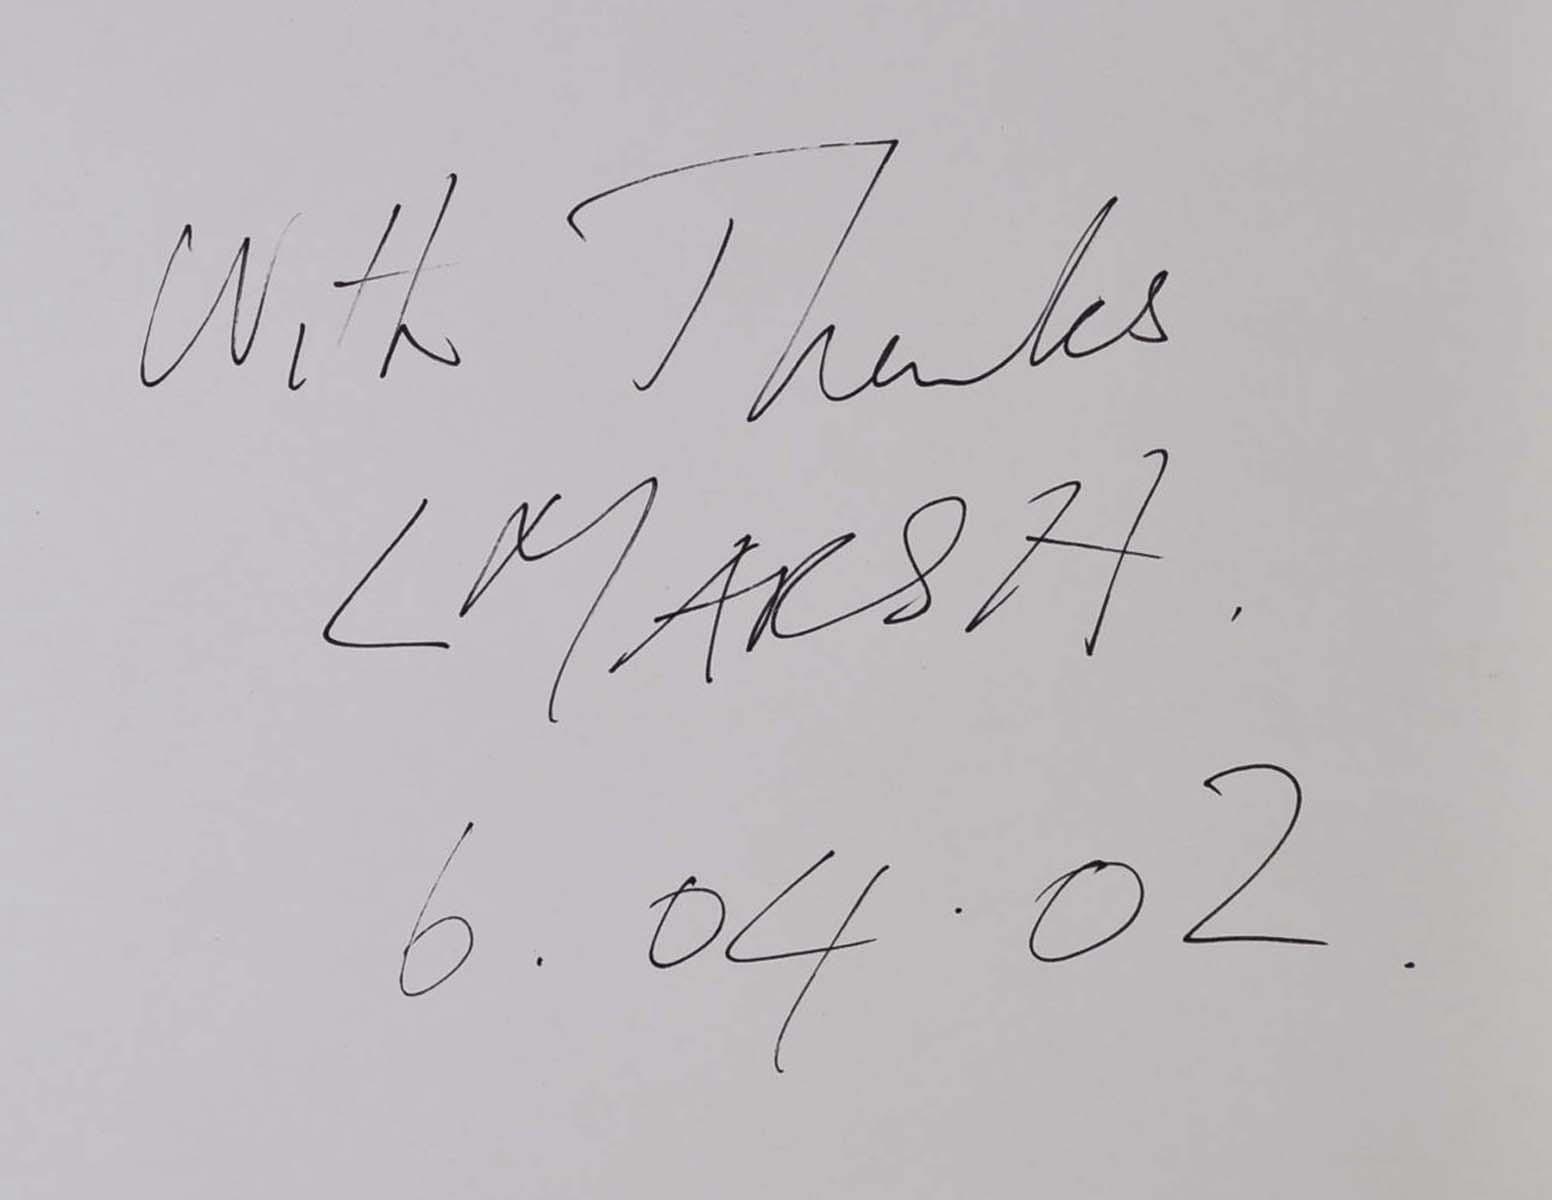 With Thanks
L MARSH.
6.04.02.